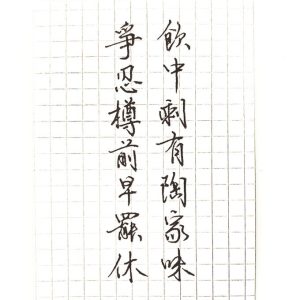 飲中剩有陶家味
爭忍樽前早罷休